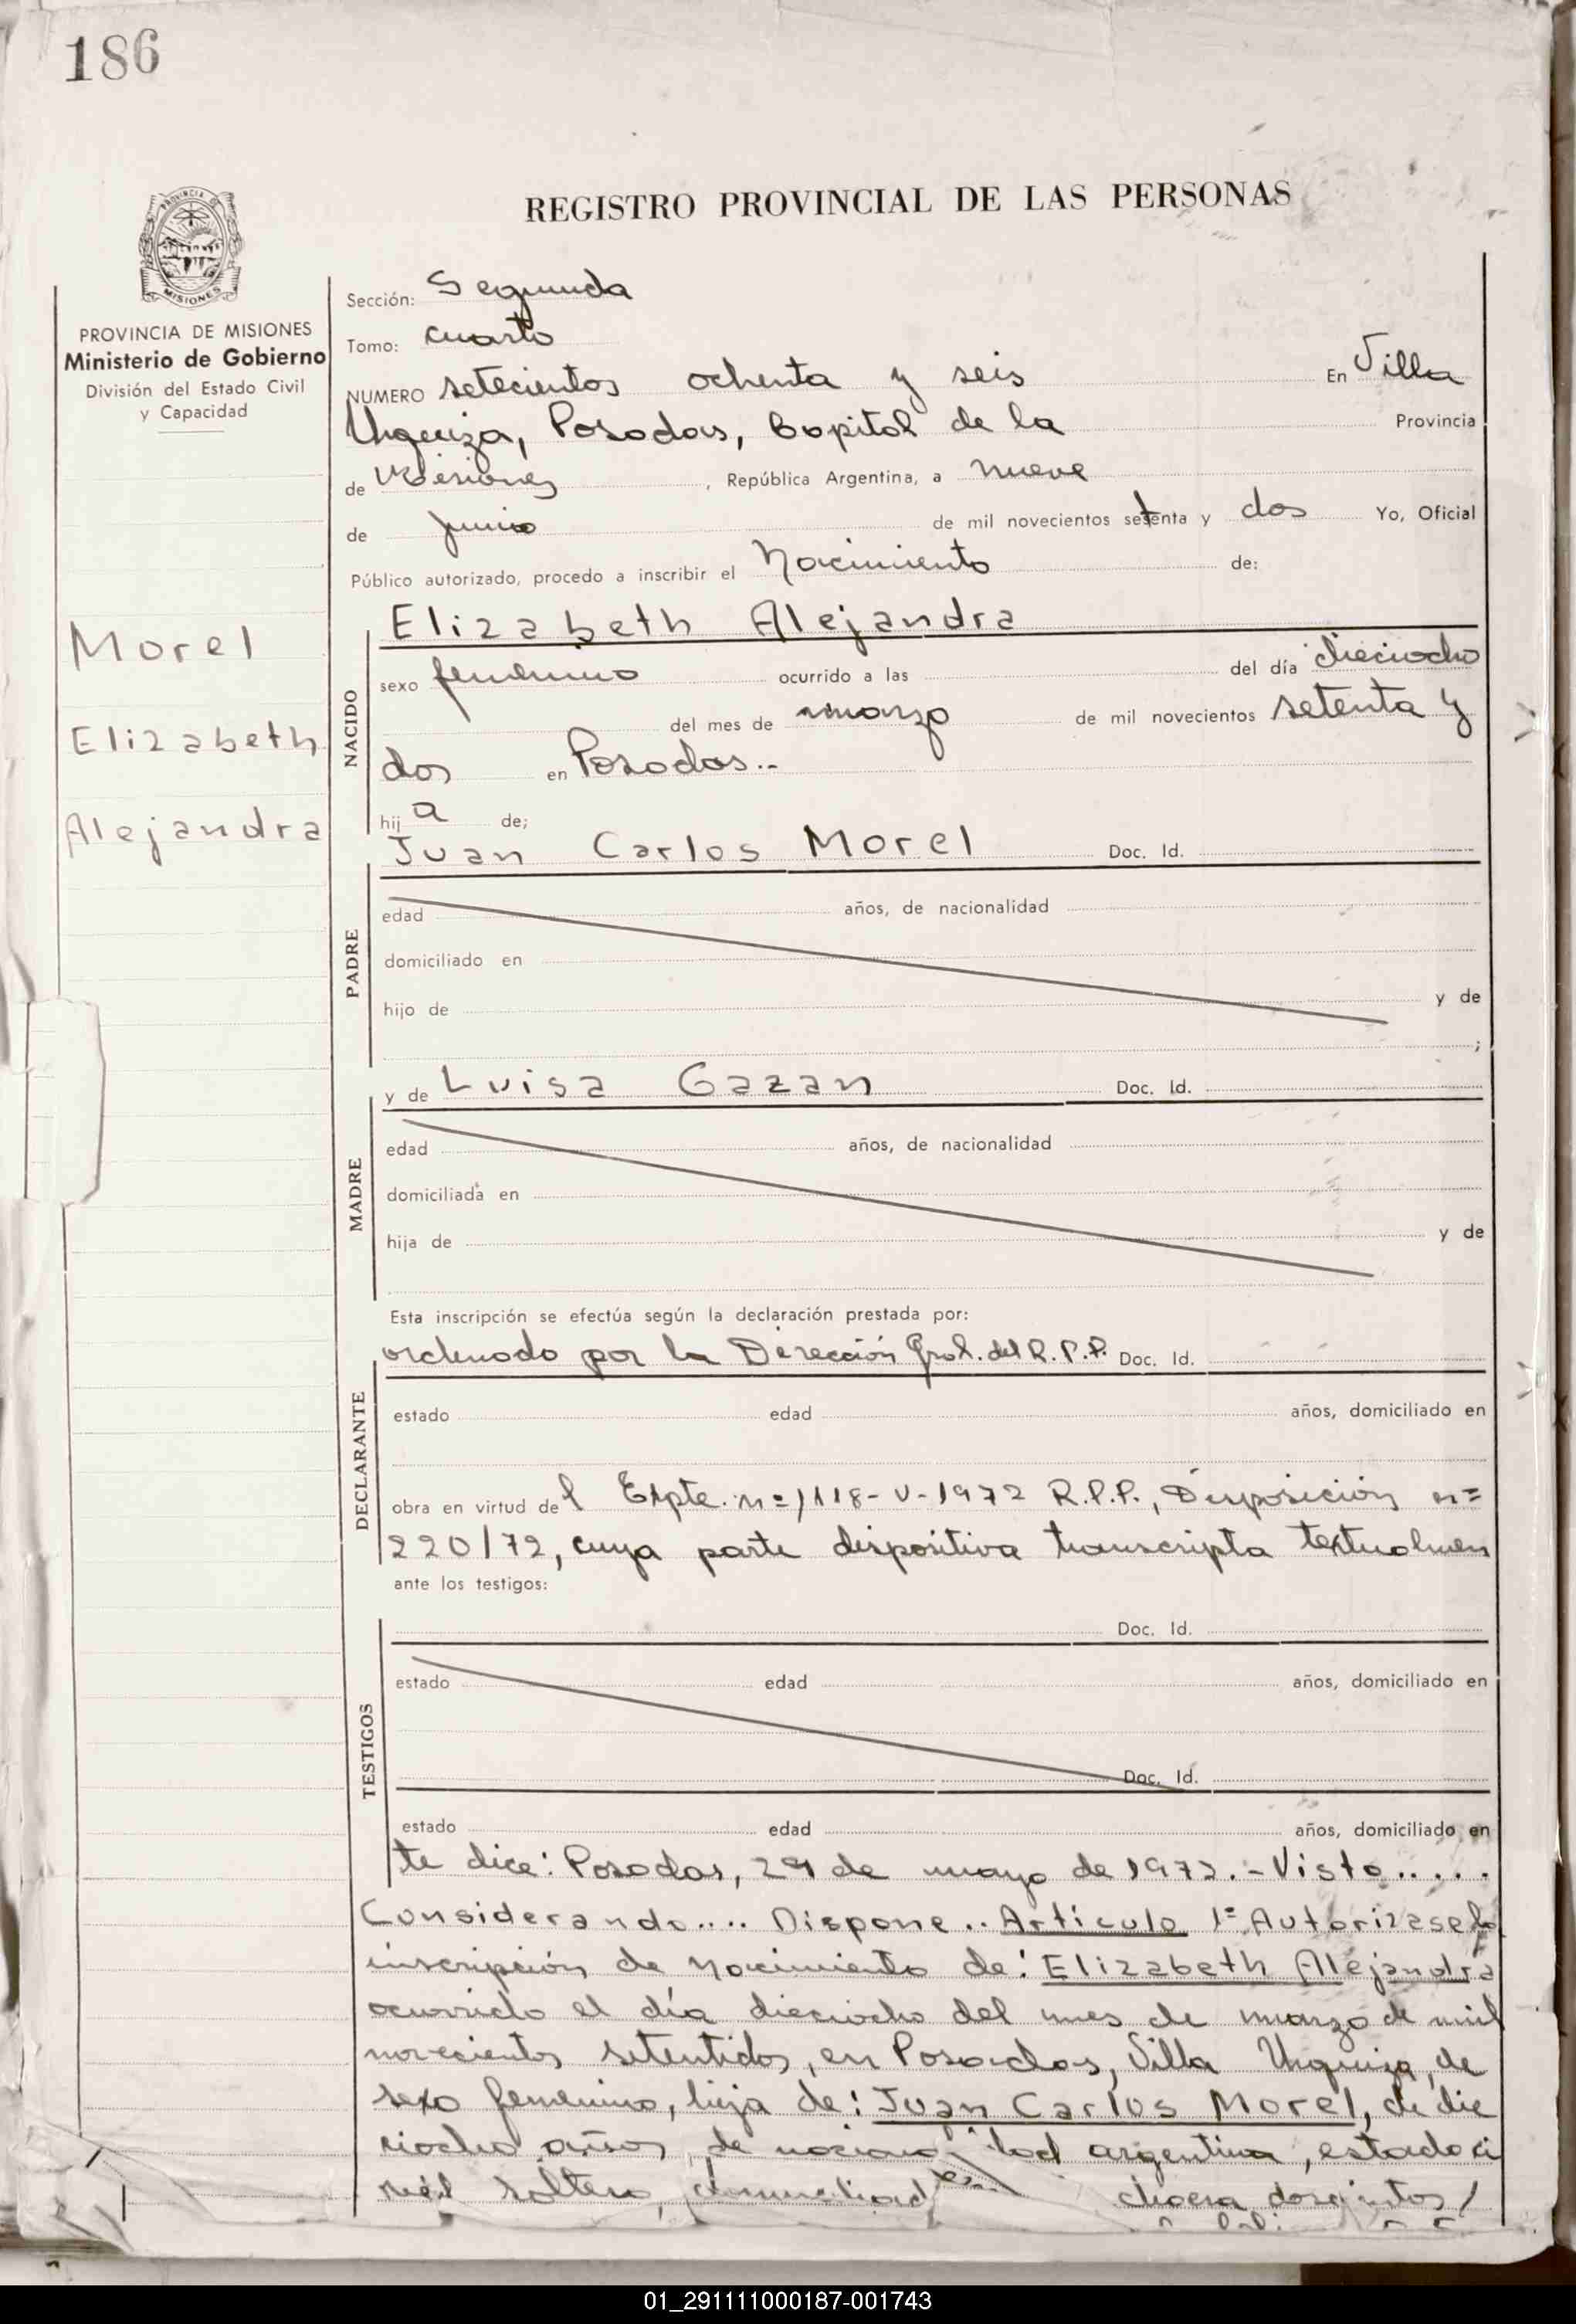 186
REGISTRO PROVINCIAL DE LAS PERSONAS
MISIONES
PROVINCIA DE MISIONES
Ministerio de Gobierno
División del Estado Civil
y Capacidad
Morel
Elizabeth
Alejandra
Sección: Segunda
Tomo: cuarto
NUMERO setecientos ochenta y seis En Villa
Urquiza, Posadas, Capital de la Provincia
de Misiones, República Argentina, a nueve
de junio de mil novecientos setenta y dos Yo, Oficial
Público autorizado, procedo a inscribir el Nacimiento de:
Elizabeth Alejandra
NACIDO
sexo femenino ocurrido a las del día dieciocho
del mes de marzo de mil novecientos setenta y
dos en Posadas..-
hij a de;
Juan Carlos Morel Doc. Id.
PADRE
edad años, de nacionalidad
domiciliado en
hijo de y de
;
y de Luisa Gazan Doc. Id.
MADRE
edad años, de nacionalidad
domiciliada en
hija de y de
Esta inscripción se efectúa según la declaración prestada por:
ordenado por la Dirección Gral. del R.P.P. Doc. Id.
DECLARANTE
estado edad años, domiciliado en
obra en virtud del Expte. n= 1118-V-1972 R.P.P., Disposición n=
220/72, cuya parte dispositiva transcripta textualmen
ante los testigos:
Doc. Id.
TESTIGOS
estado edad años, domiciliado en
Doc. Id.
estado edad años, domiciliado en
te dice: Posadas, 29 de mayo de 1972.- Visto.....
Considerando.... Dispone.. Artículo 1= Autorizase la
inscripción de nacimiento de: Elizabeth Alejandra
ocurrido el día dieciocho del mes de marzo de mil
novecientos setentidos, en Posadas, Villa Urquiza, de
sexo femenino, hija de: Juan Carlos Morel, de die
ciocho años, de argentina, estado ci
soltero, chacra doscientos/
01_291111000187-001743